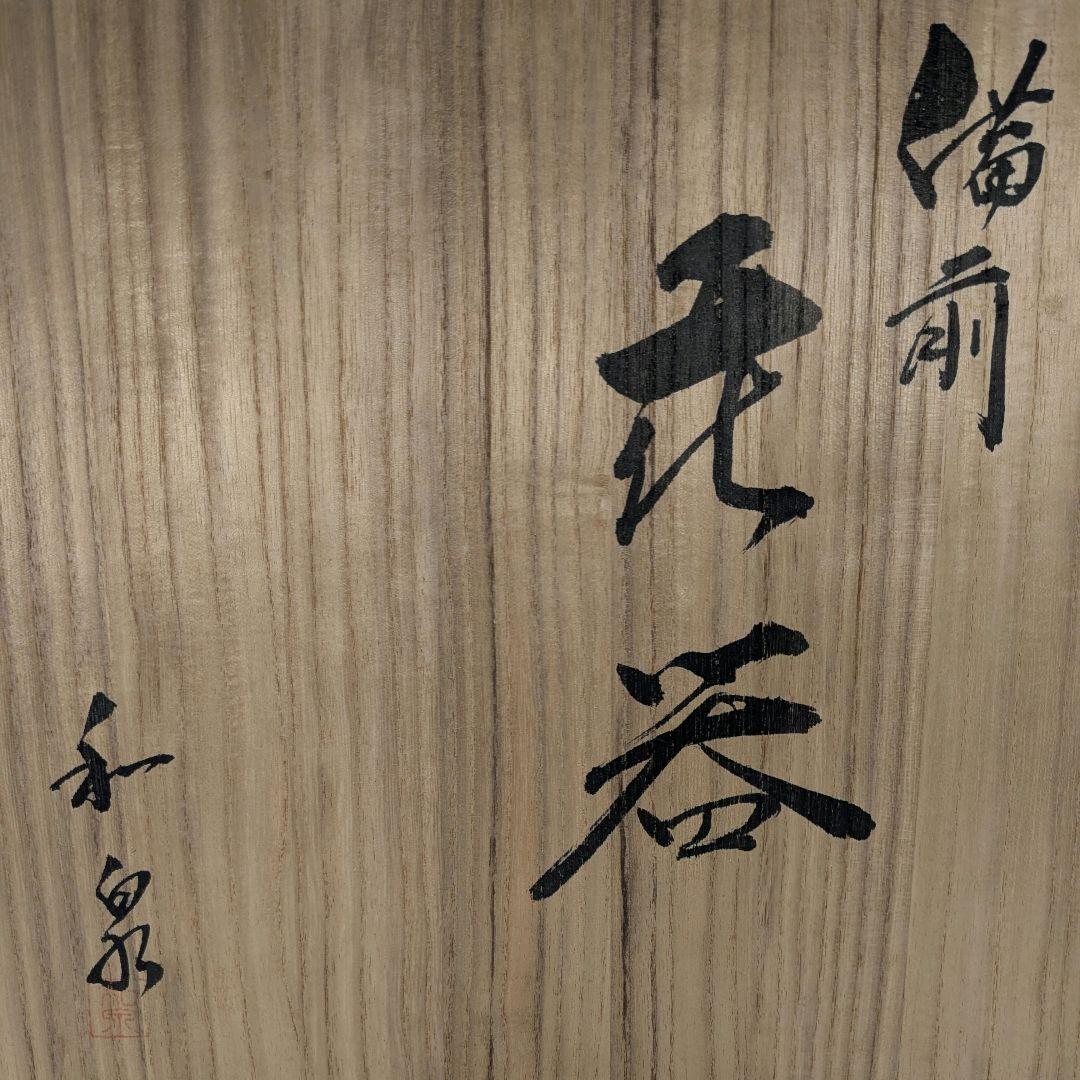 備前
花器
和泉